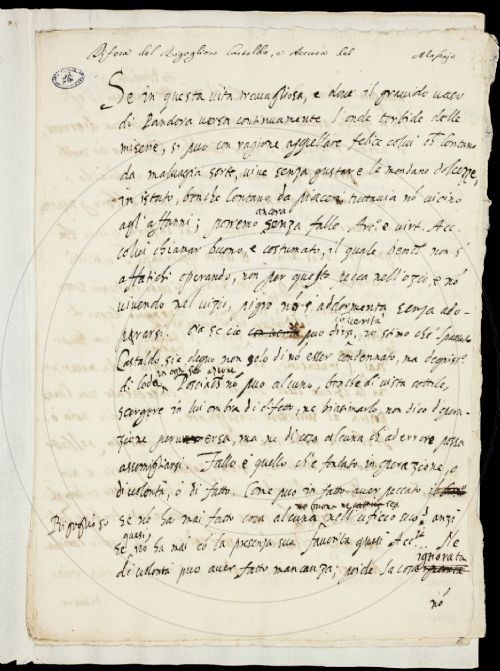 Difesa del Rigoglioso Castaldo, e Accusa del Massajo
Se in questa vita travagliosa, e dove il gravido vaso
di Pandora versa continuamente l'onde torbide delle
miserie, si può con ragione appellare felice colui ch lontano
da malvagia sorte, vive senza gustare le mondane dolcezze,
in istato, benche lontano da piaceri tuttavia nō vicino
agl'affanni; potremo ancora senza fallo Arc.o e virt. Acc.
colui chiamar buono, e costumato, il quale benchè non s'
affatichi operando, non per questo pecca nell'ozio, e nō
vivendo nel vizio, pigro nō s'addormenta senza ado-
perarsi. Or se ciò con verità può dirsi, io stimo che'l
Castaldo sia degno non solo di nō esser condennato, ma degniss.o
di lode in ogni suo Poscia nō può alcuno, benche di vista sottile,
scorgere in lui ombra di difetto, ne biasimarlo, non dico d'opera-
zione perversa, ma ne di cosa alcuna ch'ad errore possa
assomigliarsi. Fallo è quello ch'è fondato in operazione, o
di volontà, ò di fatto. Come può in fatto aver peccato il
Rigoglioso se nō ha mai fatto cosa alcuna ne buona ne cattiva nell'uficio suo? anzi
se quasi nō ha mai cō la presenza sua favorita questa Acc.a Ne
di volontà può aver fatto mancanza; poichè la cosa ignorata
nō